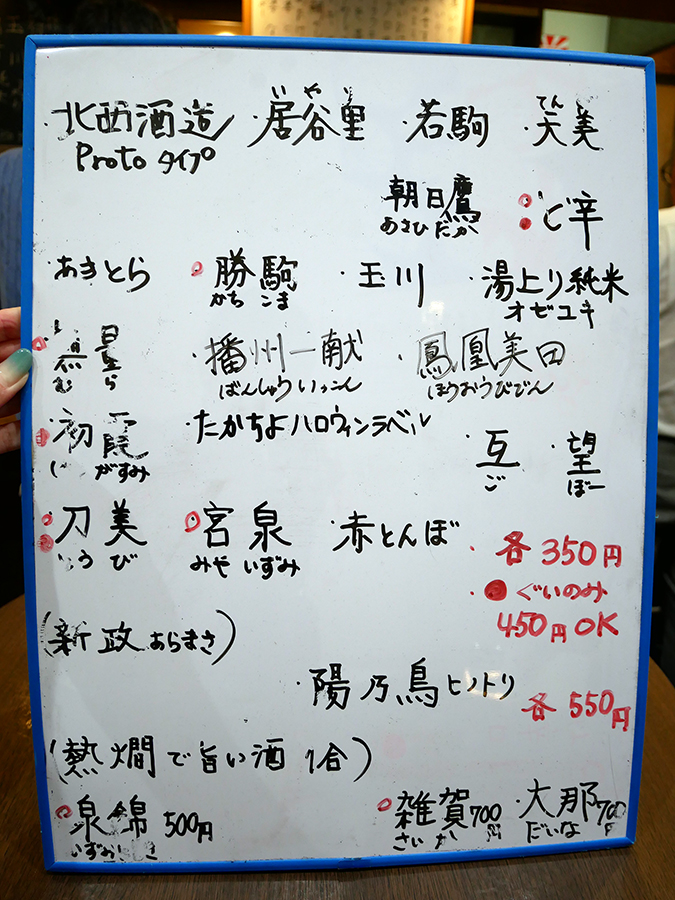 いやり
・北西酒造 ・居谷里 ・若駒 ・天美
てん
Proto タイプ
朝日鷹 ど辛
あさひだか
・あきとら 勝駒 ・玉川 ・湯上り純米
かちこま オゼユキ
・播州一献 ・鳳凰美田
むら ばんしゅういっこん ほうおうびでん
初霞 ・たかちよハロウィンラベル
がすみ ・互 ・望
ご ぼー
刀美 宮泉 ・赤とんぼ
び みやいずみ
・各350円
・●ぐいのみ
450円OK
(新政あらまさ)
・陽乃鳥ヒノトリ 各550円
(熱燗で旨い酒 1合)
泉錦 500円 雑賀 700円 ・大那 700円
いずみ さいか だいな